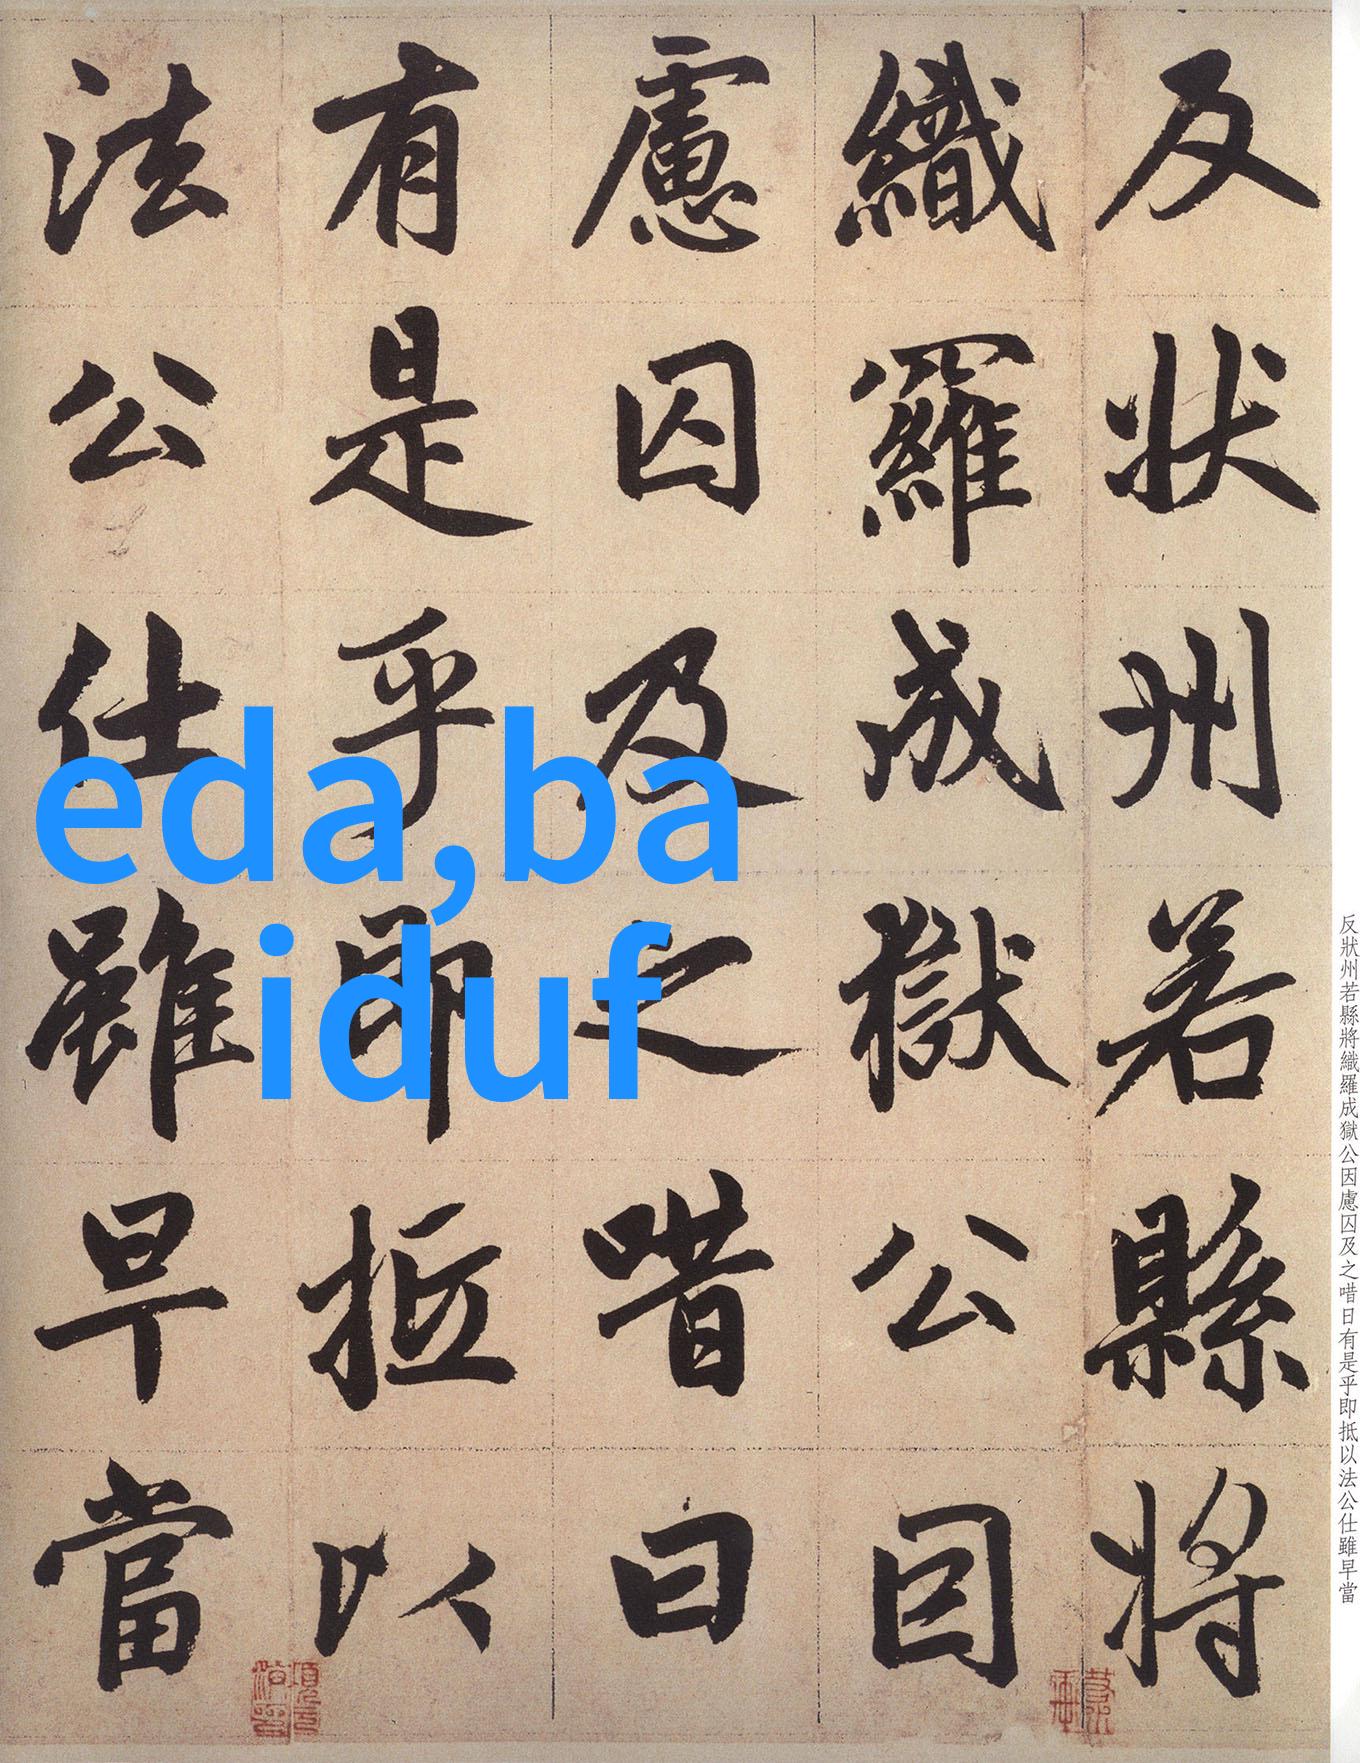 反狀州若縣將
織羅成獄公因
慮囚及之喈曰
有是乎即抵以
法公仕雖早當
eda,ba
iduf
反狀州若縣將織羅成獄公因慮囚及之唶日有是乎即抵以法公仕雖早當